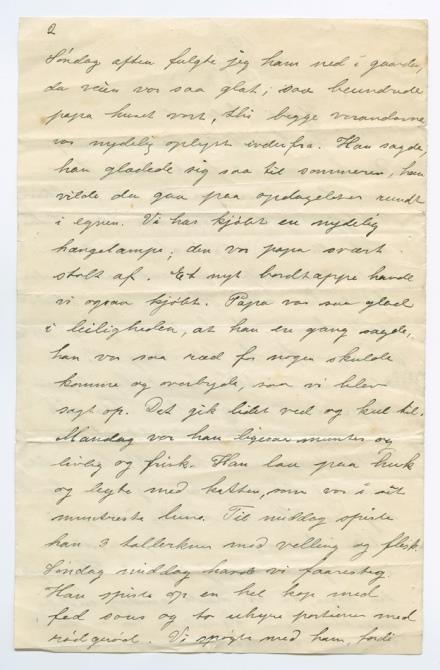 2
Søndag aften fulgte jeg ham ned i gaarden,
da veien var saa glat; saa beundrede
papa huset vort, thi begge verandaerne
var nydelig oplyst inderfra. Han sagde,
han glædede sig saa til sommeren, han
vilde da gaa paa opdagelser rundt
i egnen. Vi har kjøbt en nydelig
hængelampe; den var papa svært
stolt af. Et nyt bordtæppe havde
vi ogsaa kjøbt. Papa var saa glad
i leiligheden, at han en gang sagde,
han var saa ræd for nogen skulde
komme og overbyde, saa vi blev
sagt op. Det gik lidet ved og kul til.
Mandag var han ligesaa munter og
livlig og frisk. Han laa paa huk
og legte med katten, som var i sit
muntreste lune. Til middag spiste
han 3 tallerkner med velling og flesk.
Søndag middag havde vi faaresteg.
Han spiste op en hel kop med
fed saus og to uhyre portioner med
rødgrød. Vi spøgte med ham, fordi